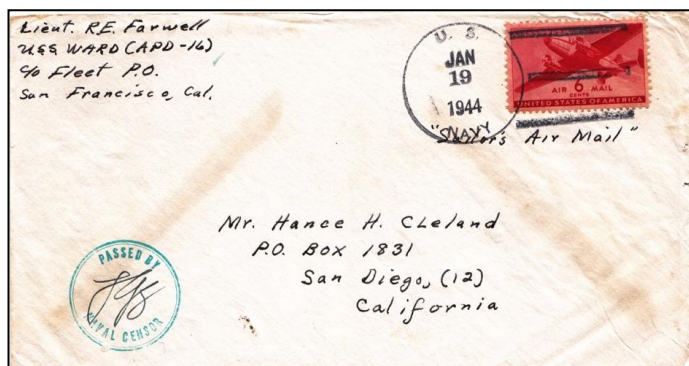 Lieut. R.E. Farwell
USS WARD (APD-16)
c/o Fleet P.O.
San Francisco, Cal.
U. S.
JAN
19
1944
NAVY
AIR 6 MAIL
CENTS
UNITED STATES OF AMERICA
"Sailor's Air Mail"
Mr. Hance H. Cleland
P.O. Box 1831
San Diego, (12)
California
PASSED BY
NAVAL CENSOR